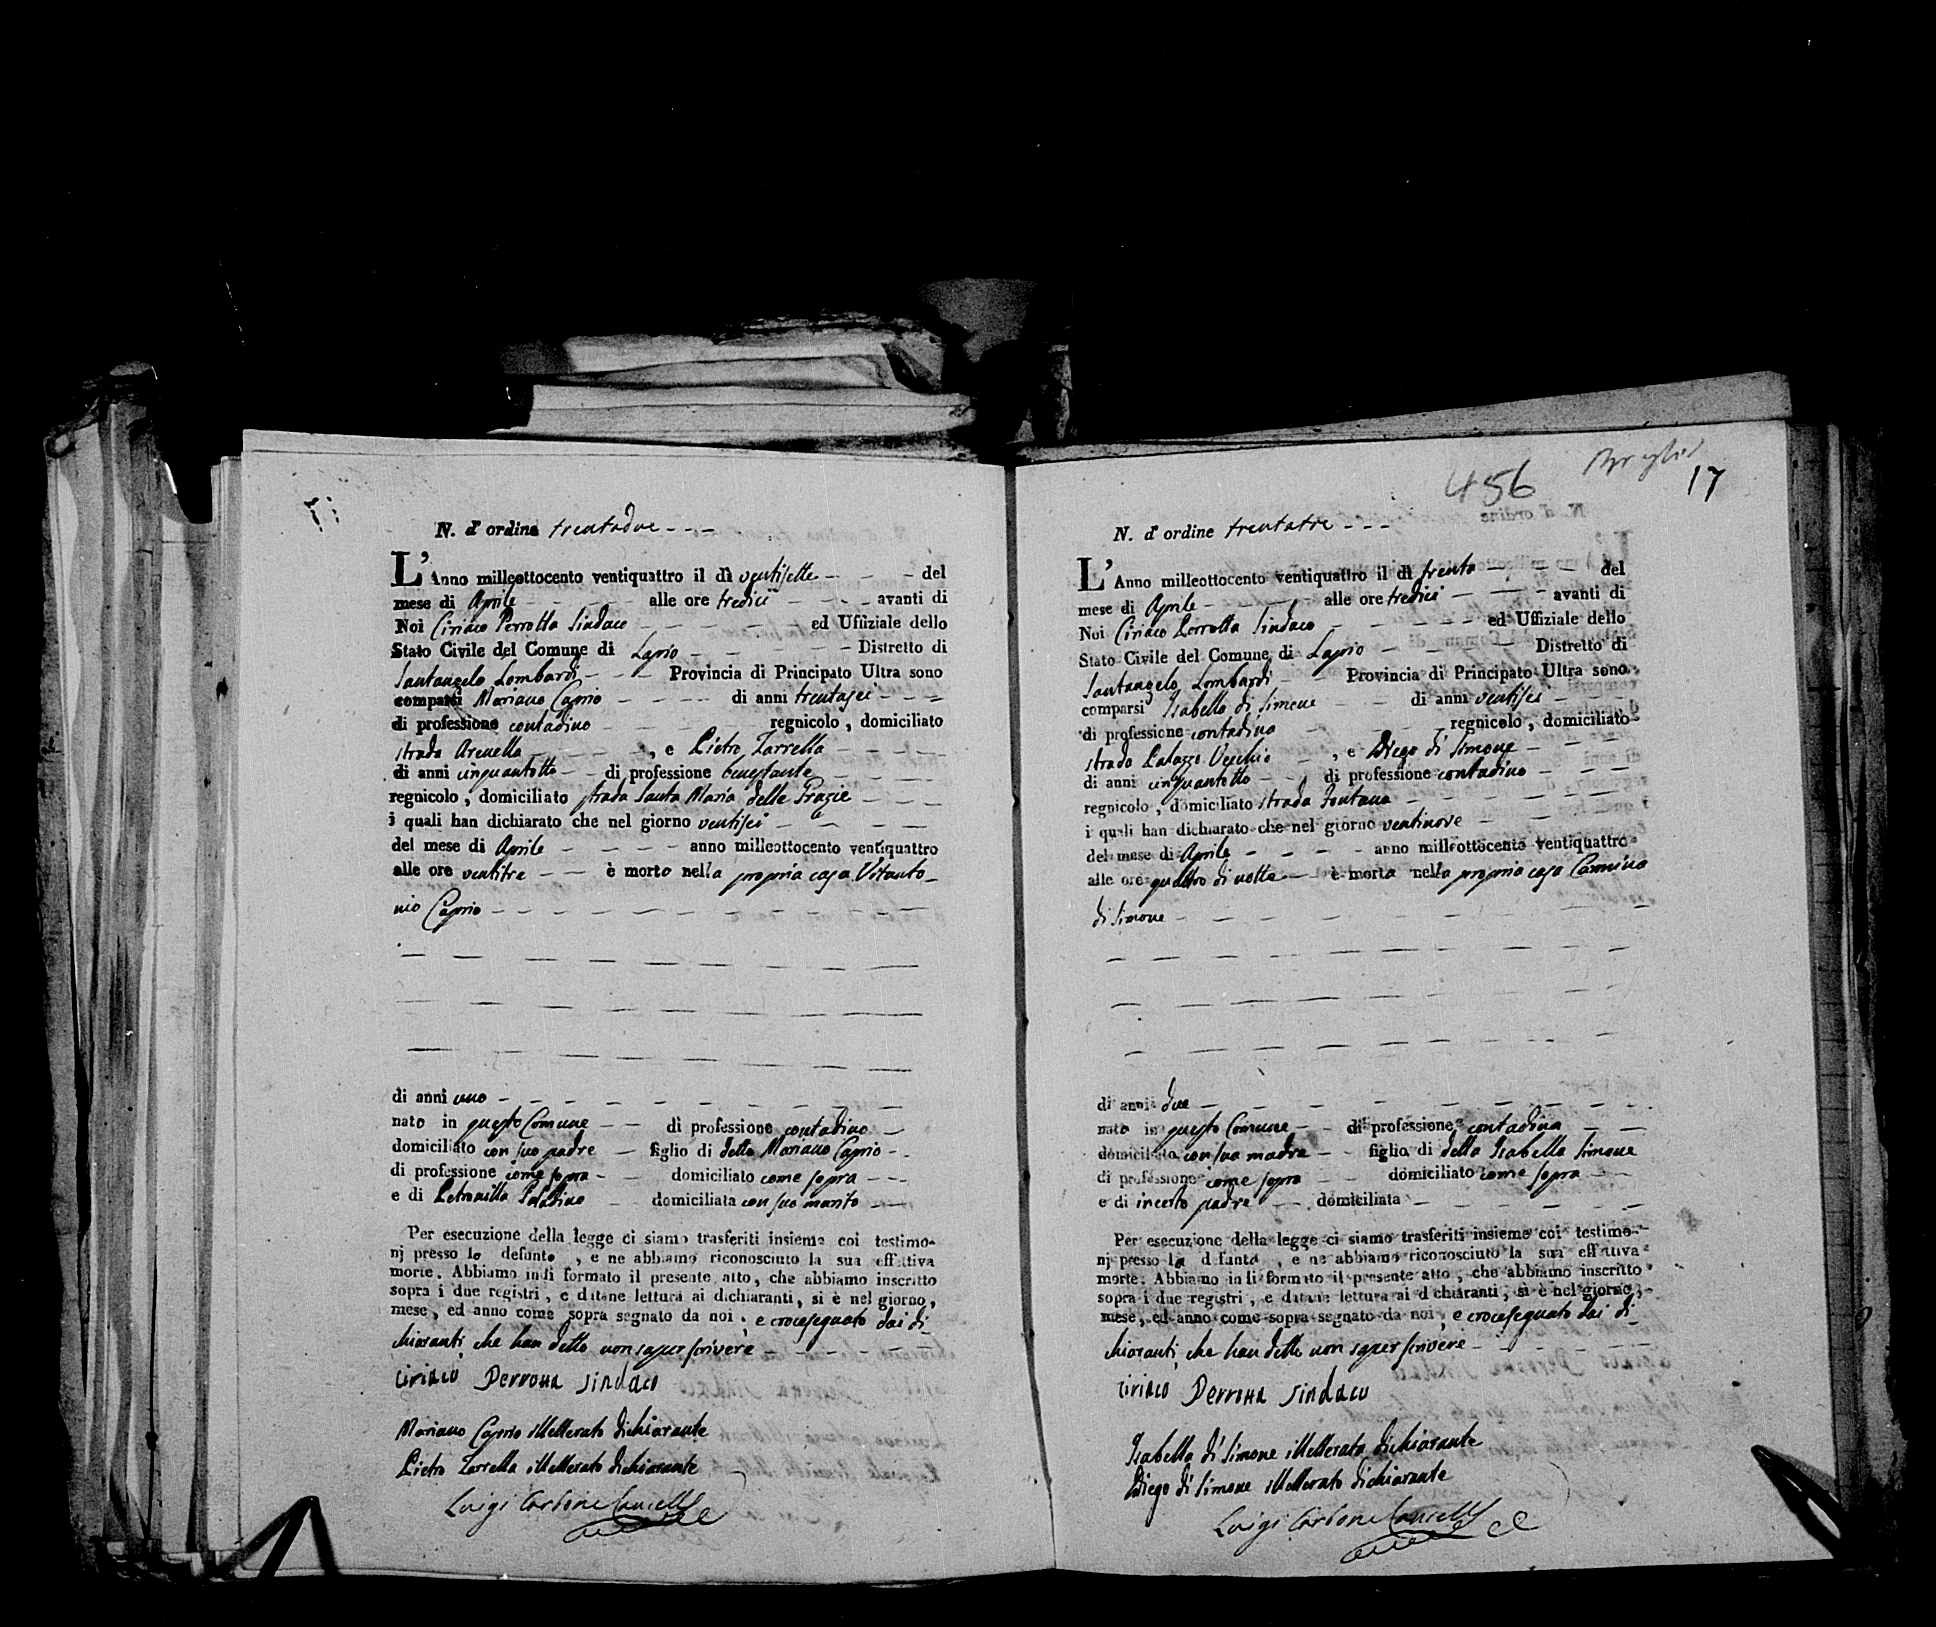 N. d' ordine trentadue - - -
L' Anno milleottocento ventiquattro il dì ventisette - - - del
mese di Aprile - - - - alle ore tredici - - - - avanti di
Noi Ciriaco Perrotta Sindaco - - - - - ed Uffiziale dello
Stato Civile del Comune di Lapio - - - - - Distretto di
Santangelo Lombardi - - - Provincia di Principato Ultra sono
comparsi Mariano Caprio - - - - di anni trentasei - - -
di professione contadino - - - - regnicolo , domiciliato
strada Arenella - - - - , e Pietro Zarrella - - - -
di anni cinquantotto - - di professione benestante - - - -
regnicolo , domiciliato strada Santa Maria delle Grazie - - -
i quali han dichiarato che nel giorno ventisei - - - -
del mese di Aprile - - - - anno milleottocento ventiquattro
alle ore ventitre - - è morto nella propria casa Vitanto-
nio Caprio - - - - - - - - - -
di anni uno - - - - - - - -
nato in questo Comune - - di professione contadino -
domiciliato con suo padre - figlio di detto Mariano Caprio - -
di professione come sopra - - domiciliato come sopra - - -
e di Petronilla - - domiciliata con suo marito - -
Per esecuzione della legge ci siamo trasferiti insieme coi testimo-
nj presso lo defunto , e ne abbiamo riconosciuto la sua effettiva
morte. Abbiamo indi formato il presente atto, che abbiamo inscritto
sopra i due registri, e datane lettura ai dichiaranti, si è nel giorno,
mese, ed anno come sopra segnato da noi ; e crocesegnato dai di-
chiaranti, che han detto non saper scrivere - - - - - -
Ciriaco Perrotta Sindaco
Mariano Caprio illetterato dichiarante
Pietro Zarrella illetterato dichiarante
Luigi Carbone Cancell
456
17
N. d' ordine trentatre - - -
L' Anno milleottocento ventiquattro il dì trenta - - - - del
mese di Aprile - - - - alle ore tredici - - - - avanti di
Noi Ciriaco Perrotta Sindaco - - - - - ed Uffiziale dello
Stato Civile del Comune di Lapio - - - - Distretto di
Santangelo Lombardi - - Provincia di Principato Ultra sono
comparsi Isabella di Simone - - - di anni ventisei -
di professione contadina - - - - regnicolo , domiciliato
strada Palazzo Vecchio - - , e Diego di Simone - - -
di anni cinquantotto - - , di professione contadino - - -
regnicolo , domiciliato strada Fontana - - - - - -
i quali han dichiarato che nel giorno ventinove - - - -
del mese di Aprile - - - - anno milleottocento ventiquattro
alle ore quattro di notte - - è morta nella propria casa Carmina
di Simone - - - - - - - -
di anni due - - - - - - - -
nata in questo Comune - - di professione contadina - -
domiciliata con sua madre - - figlia di detta Isabella Simone
di professione come sopra - - domiciliato come sopra - -
e di incerto padre - - domiciliata - - - - -
Per esecuzione della legge ci siamo trasferiti insieme coi testimo-
nj presso la defunta , e ne abbiamo riconosciuto la sua effettiva
morte. Abbiamo indi formato il presente atto, che abbiamo inscritto
sopra i due registri, e datane lettura ai dichiaranti, si è nel giorno,
mese, ed anno come sopra segnato da noi ; e crocesegnato dai di-
chiaranti, che han detto non saper scrivere - - - - -
Ciriaco Perrotta Sindaco
Isabella di Simone illetterata dichiarante
Diego di Simone illetterato dichiarante
Luigi Carbone Cancell